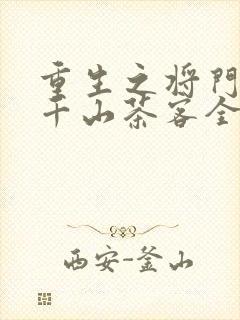 重生之将門
千山茶客全
西安-釜山